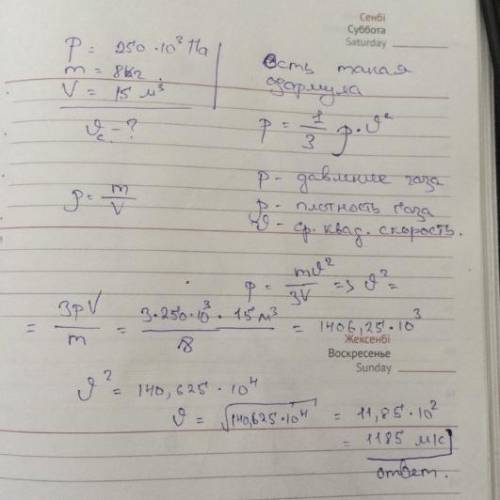 Сенбі
Суббота
Saturday
P = 250 · 10³ Па
m = 8 кг
V = 15 м³
ϑc - ?
ρ = m/V
Есть такая
формула
p = 1/3 ρ · ϑ²
p - давление газа
ρ - плотность газа
ϑ - ср. квад. скорость.
p = mϑ²/3V => ϑ² =
= 3pV/m = 3·250·10³ · 15 м³/8 = 1406,25 · 10³
Жексенбі
Воскресенье
Sunday
ϑ² = 140,625 · 10⁴
ϑ = √140,625 · 10⁴ = 11,85 · 10²
= 1185 м/с
ответ.